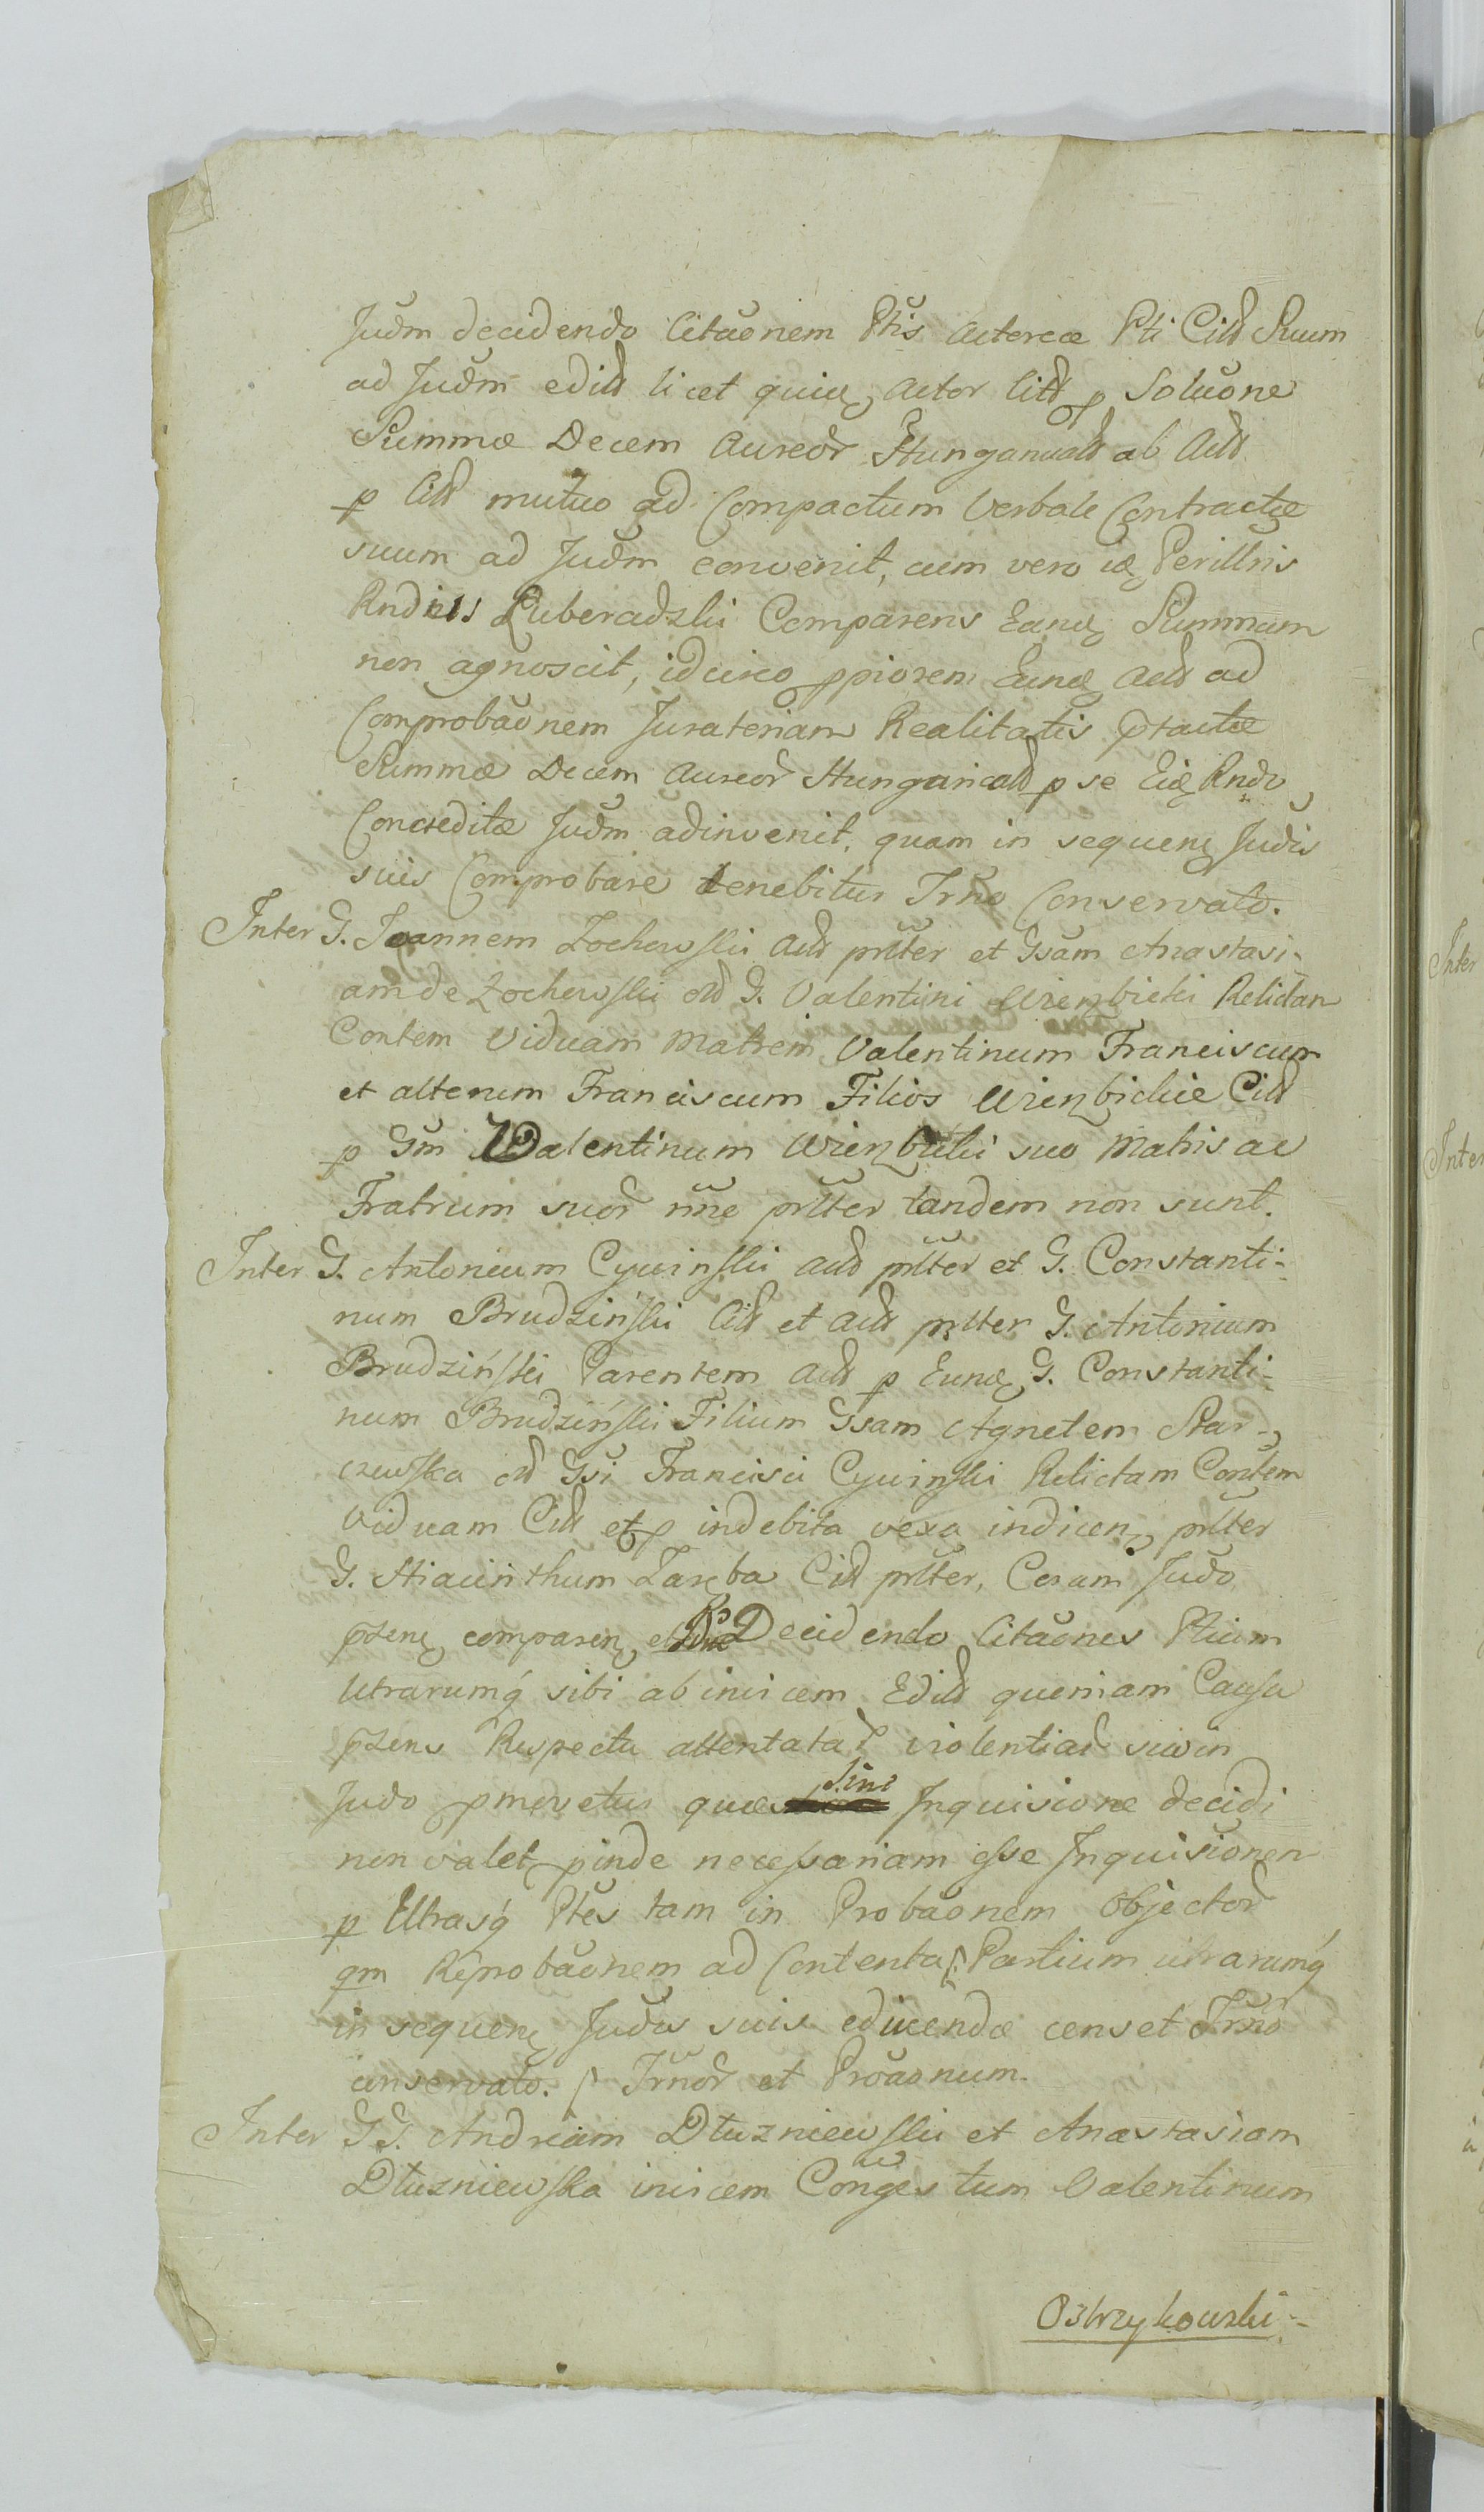 Judm decidendo Citaonem Ptis actorece Pti Citt Suum
ad Judm edidt licet quia actor Citt p Soluone
Summæ Decem aureor Hungaricald ab Actt
p Citt mutuo ad Compactum Verbale Contractæ
suum ad Judm convenit, cum vero iæ Perillris
Rndnus Luberadzki Comparens Eand Summam
non agnoscit, idcirco ppiorem Eund actt ad
Comprobaonem Juratoriam Realitatis ptactæ
Summæ Decem aureor Hungaricald p se Eid Rndo
Concreditæ Judm adinvenit, quam in sequen Judis
suis Comprobare tenebitur Trno Conservato.
Inter G. Joannem Zochowski actt prlter et Gsam Anastasi-
am de Zochowski old G. Valentini Wierzbicki Relictan
Contem Viduam Matrem Valentinum Franciscum
et alterum Franciscum Filios Wierzbickie Citt
p Gm Valentinum Wierzbicki suo Matris ac
Fratrum suor nne prlter tandem non sunt.
Inter G. Antonium Cywinski actt prlter et G. Constanti-
num Brudziński Citt et actt prlter G. Antonium
Brudziński Parentem actt p Eund G. Constanti-
num Brudziński Filium Gsam Agnetem Star-
czewska old Gsi Francisci Cywinski Relictam Contem
Viduam Citt et p indebita vexa indicen prlter
G. Hiacinthum Zaręba Citt prlter, Coram Judo
pzen comparen Decidendo Citaones Ptium
Utrarumq sibi ab invicem Edidt quoniam Causa
pzens Respectu attentatar violentiar suo in
Judo pmovetur quæ Sine Inquisione decidi
non valet pinde necessariam esse Inquisionem
p Utrasq Ptes tam in Probaonem Objector
qm Reprobaonem ad Contenta /: Partium utrarumq
in sequen Judis suis educenda censet Trno
conservato. /: Trnor et Proaonum.
Inter G G. Andream Dłuzniewski et Anastasiam
Dłuzniewska invicem Conges tum Valentinum
Ostrzykowski